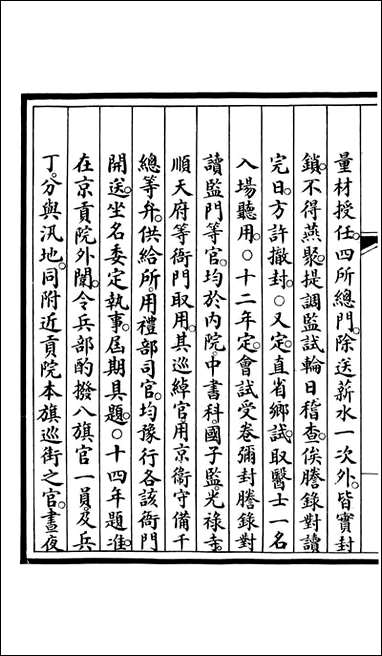 量材授任。四所總門。除送薪水一次外。皆實封
鎖。不得燕聚。提調監試輪日稽查。俟謄錄對讀
完日。方許撤封。○又定。直省鄉試。取醫士一名
入場聽用。○十二年定。會試受卷彌封謄錄對
讀監門等官。均於內院。中書科。國子監。光祿寺。
順天府等衙門取用。其巡綽官用京衞守備千
總等弁。供給所。用禮部司官。均豫行各該衙門
開送。坐名委定執事。屆期具題。○十四年題准。
在京貢院外闈。令兵部酌撥八旗官一員。及兵
丁。分與汛地。同附近貢院本旗巡街之官。晝夜